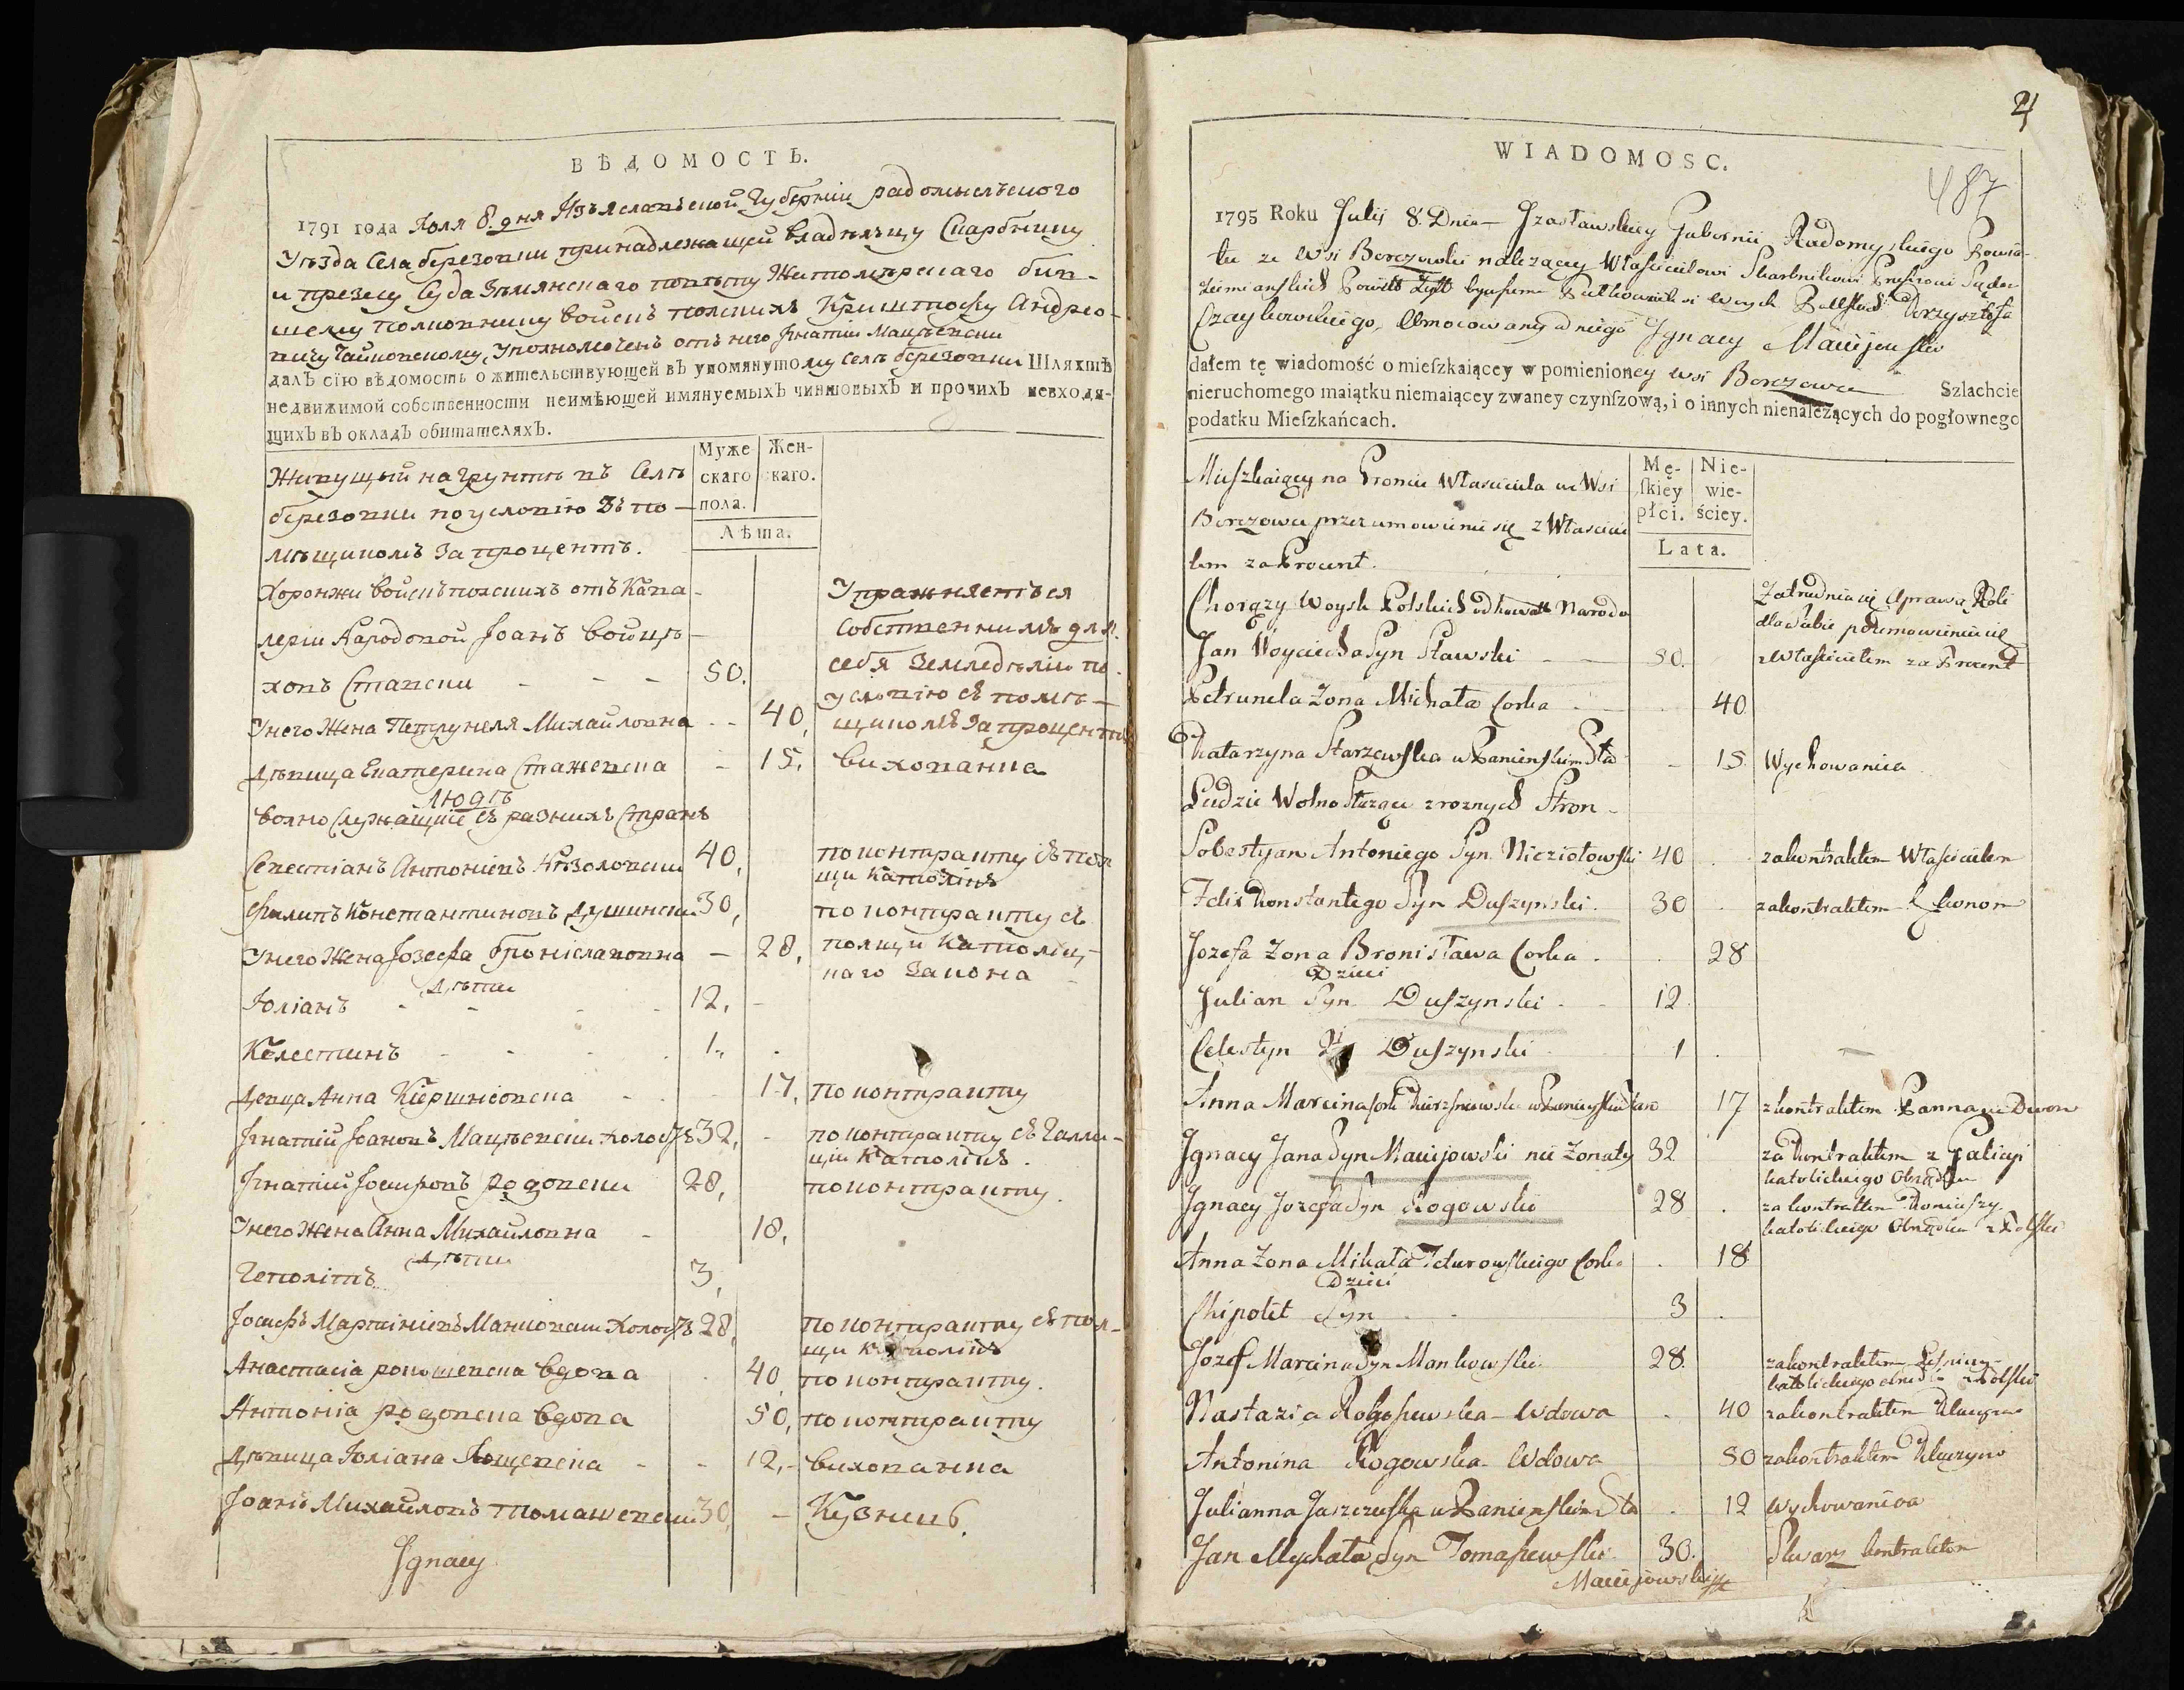 ВѢДОМОСТЬ.
1791 года Іюля 8. дня Изъяславъской Губерніи радомыслъского
Уѣзда Села березовки принадлежащей владѣльцу Скарбнику
и презесу Суда Земянскаго повѣту Житомирскаго бив-
шему полковнику войскъ полскихъ Криштофу Андрео-
вичу Чайковскому, Уполномоченъ отъ него Игнатій Мацѣевски
далъ сїю вѣдомость о жительствующей въ упомянутому селѣ березовки Шляхтѣ
недвижимой собственности неимѣющей имянуемыхъ чиншовыхъ и прочихъ невходя-
щихъ въ окладъ обитателяхъ.
Муже скаго пола.
Жен- скаго.
Лѣта.
Живущый на грунтѣ въ Селѣ
березовки по условію Зъ по-
мѣщикомъ За процентъ.
Хоронжи войскъ полскихъ отъ Кава-
леріи Народовой Іоанъ войцѣ-
ховъ Ставски - - - 50.
Упражняетъся
Собственнимъ для
себя Земледѣліи по
условію съ помѣ-
щикомъ За процентъ
Унего Жена Петрунеля Михайловна - - 40,
дѣвица Екатерина Стажевска - 15, вихованка
Людѣ
волно Служащіе съ разнихъ Странъ
Севестіанъ Антоніевъ Незоловски 40, по контракту съ пол
щи Католікъ
Филипъ Константиновъ Душински 30, по контракту съ
Унего Жена Іозефа Броніславовна - 28, полщи Католиц-
каго Закона
Дѣти
Юліанъ - - - - 12, -
Келестинъ - - - - 1, -
девца Анна Кіершніовска - - - 17, по контракту
Игнатій Іоановъ Мацѣевски холостъ 32, - по контракту съ Гали-
ціи Католікъ.
Игнатій Іосифовъ роговски 28, по контракту.
Унего Жена Анна Михайловна - 18,
Дѣти
Геполітъ 3,
Іосифъ Мартиніевъ Манковски Холостъ 28, по контракту съ пол-
щи Католікъ
Анастасія рокошевска вдова - 40, по контракту.
Антоніа роговска вдова 50, по контракту
дѣвица Юліана Ющевска - - 12, - вихованка
Іоанъ Михайловъ томашевски 30, - Кузнецъ.
Jgnacy
4
487
WIADOMOSC.
1795 Roku Julij 8. Dnia - Jzasławskiey Gubernii Radomyskiego Powia-
tu ze Wsi Berezowki należącey Właścicielowi Skarbnikowi Prezesowi Sądow
Ziemianskich Powiatu Zyt: bywszemu Pułkownikowi Woysk Polskich Krzysztofa
Czaykowskiego, Umocowany od niego Jgnacy Maciejewski
dałem tę wiadomość o mieſzkaiącey w pomienioney wsi Berezowce Szlachcie
nieruchomego maiątku niemaiącey zwaney czynſzową, i o innych nienależących do pogłownego
podatku Mieſzkańcach.
Mę- ſkiey płci.
Nie- wie- ściey.
Lata.
Mieszkaiący na Groncie Własciciela we Wsi
Berezowce przez umowienie się z Wlascicie
lem za Procent.
Chorązy Woysk Polskich od kawale Narodo
Jan Woyciecha Syn Stawski - - 50.
Zatrudnia się Uprawą Roli
dla siebie po umowieniu się
z Właścicielem za Procent
Petrunela Zona Michała Corka - - 40
Katarzyna Starzewska w Panienskim Sta - 15 Wychowanica
Ludzie Wolno Służące z roznych Stron -
Sobestyan Antoniego Syn Nieziołowski 40 . za kontraktem Właścicielem
Felix Konstantego Syn Duszynski. 30 . za kontraktem Ekonom
Jozefa Zona Bronisława Corka . . 28
Dzieci
Julian Syn Duszynski - - 12.
Celestyn Duszynski . 1 . -
Anna Marcina Corka Kierzniowska w Panienskim Stan 17 z kontraktem Panna we Dwor
Jgnacy Jana Syn Maciejowski nie Zonaty 32 za kontraktem z Galicyi
katolickiego Obrządku
Jgnacy Jozefa Syn Rogowski 28 . za kontraktem Koniuszy
katolickiego Obrządku z Polski
Anna Zona Mikała Fedurowskiego Corka . 18
Dzieci
Chipolit Syn - - 3 .
Jozef Marcina Syn Mankowski 28. za kontraktem
katolickiego z Polski
Nastazia Rokoszewska - Wdowa . 40 za kontraktem Klucznica
Antonina Rogowska - Wdowa 50 za kontraktem
Julianna Jaszczewska w Panienskim Sta . 12 wychowanica
Jan Mychała Syn Tomaszewski 30. Slusarz kontraktem
Maciejowski